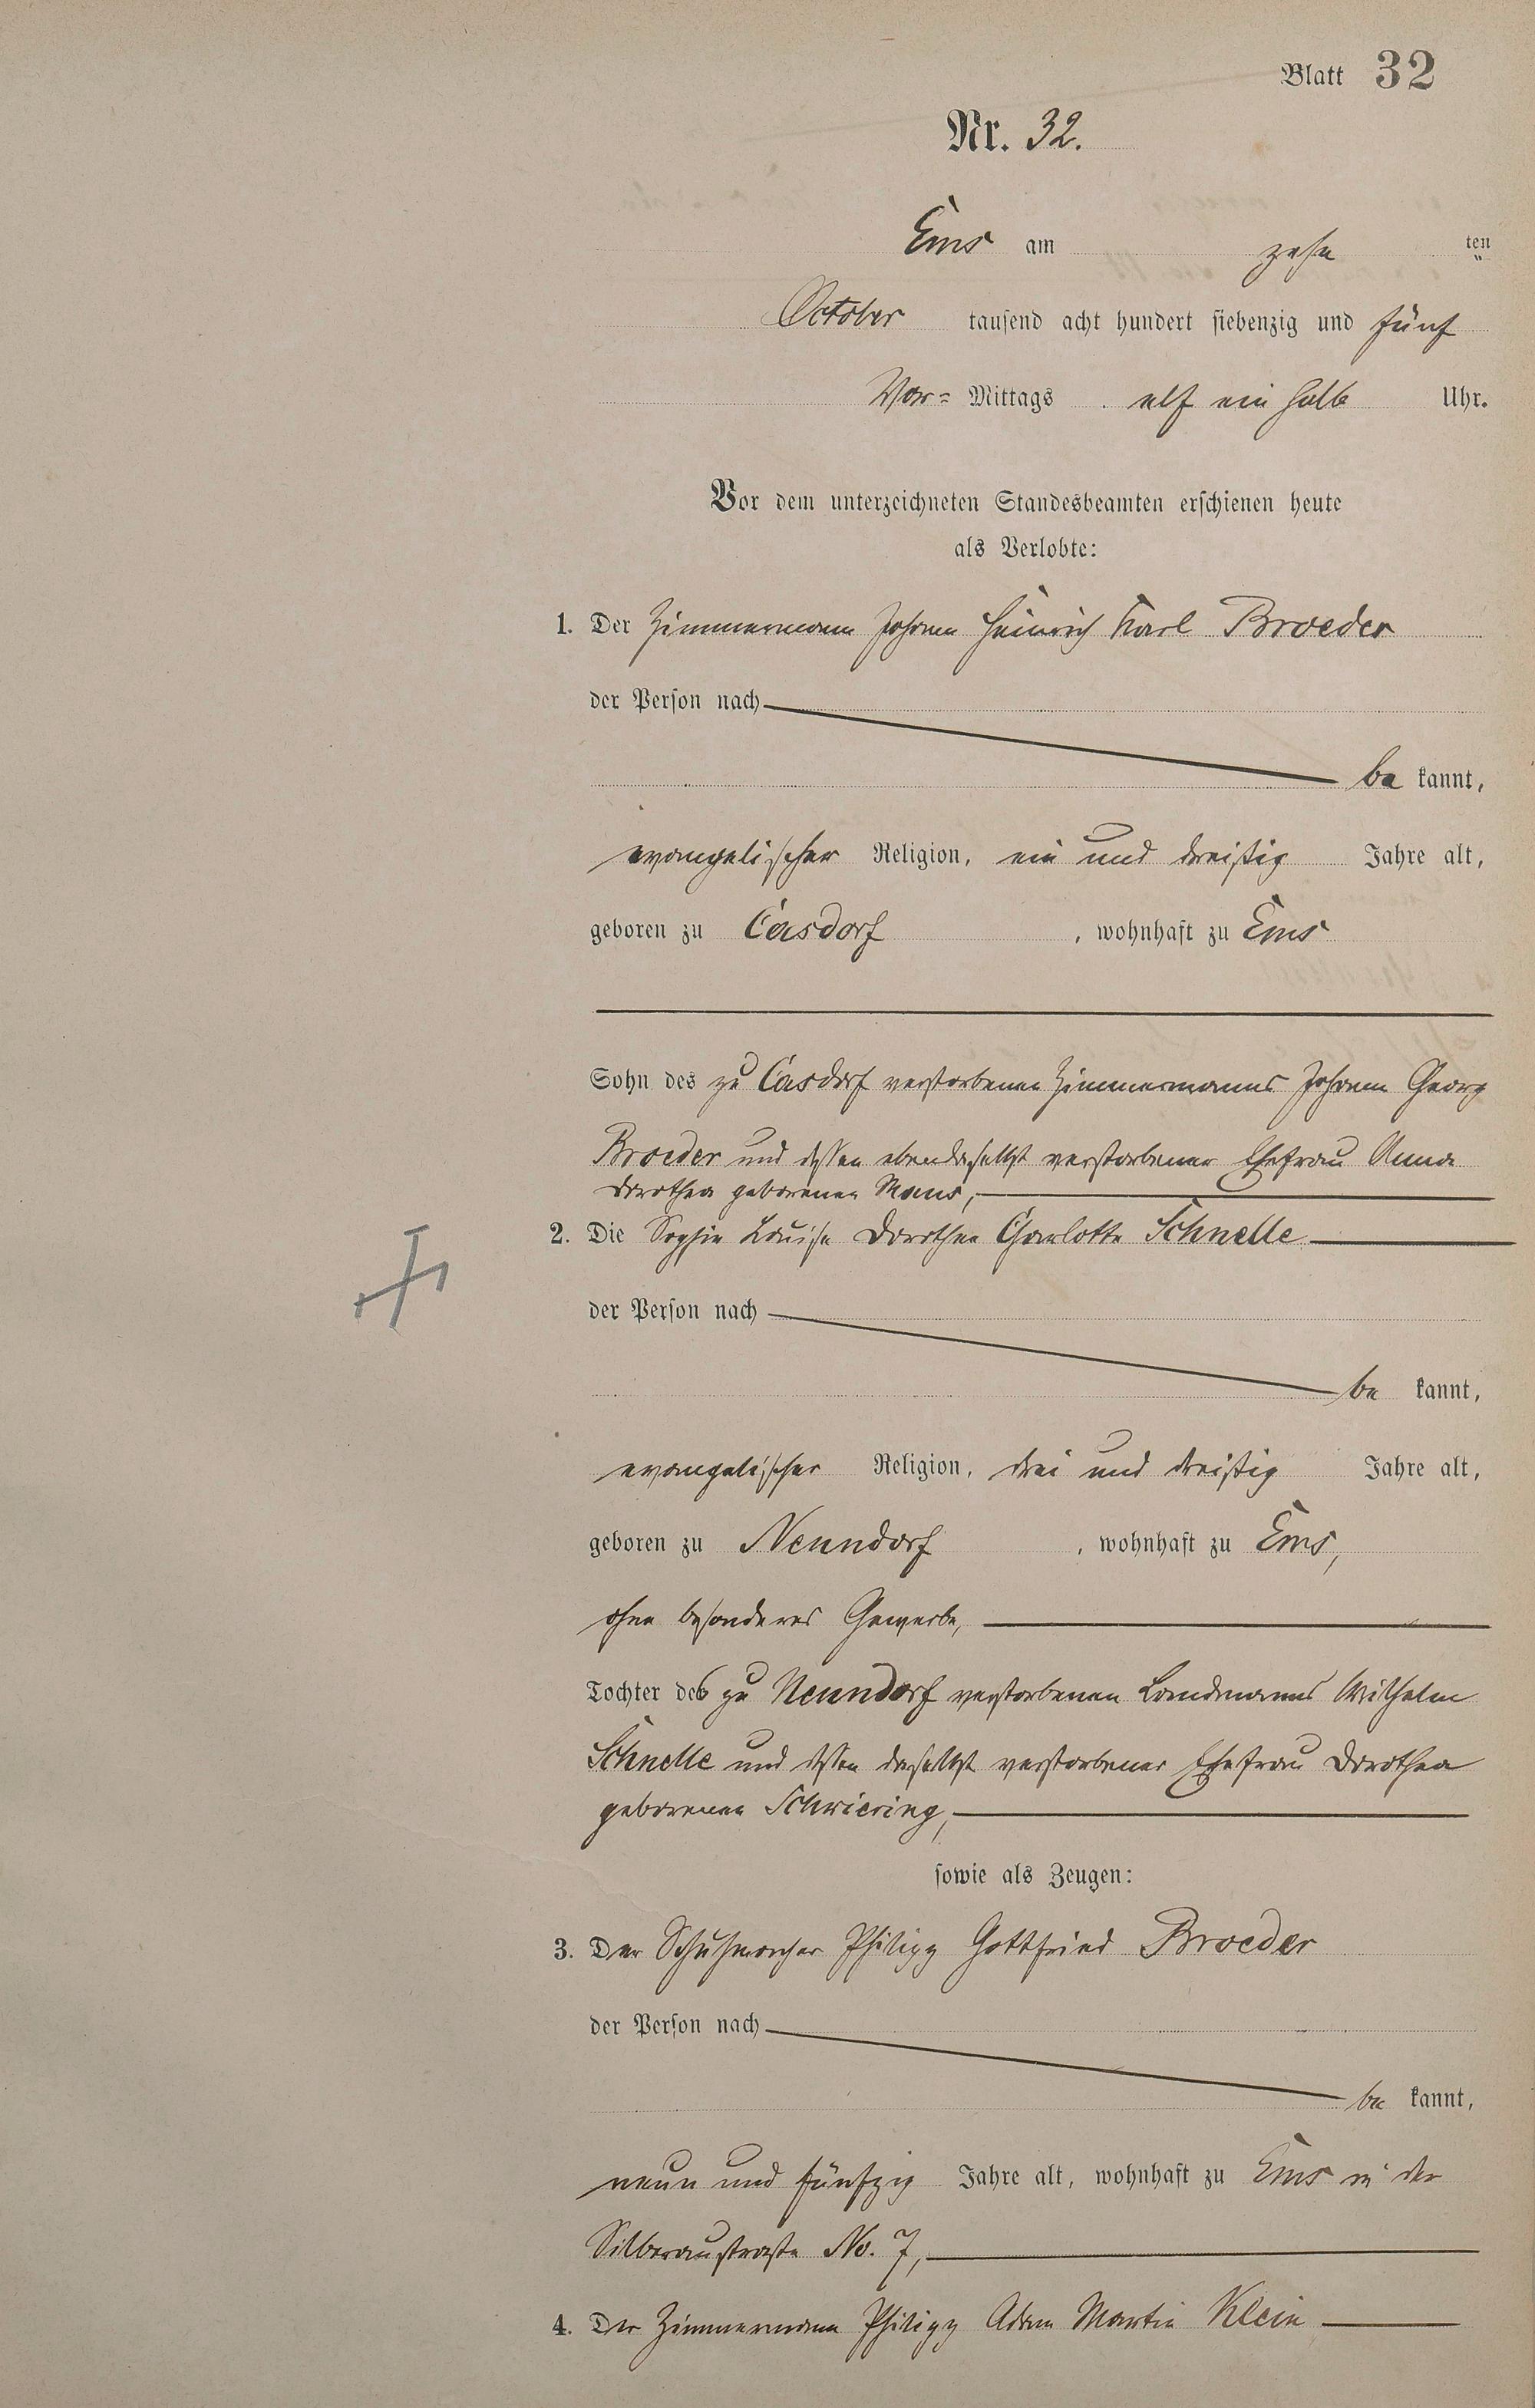 Blatt 32
Nr. 32.
Ems am zehn ten
October tausend acht hundert siebenzig und fünf
Vor= Mittags elf ein halb Uhr.
Vor dem unterzeichneten Standesbeamten erschienen heute
als Verlobte:
1. Der Zimmermann Johann Heinrich Karl Broeder
der Person nach
be kannt,
evangelischer Religion, ein und dreißig Jahre alt,
geboren zu Casdorf, wohnhaft zu Ems
Sohn des zu Casdorf verstorbenen Zimmermanns Johann Georg
Broeder und dessen ebendaselbst verstorbener Ehefrau Anna
Dorothea geborenen Maus,
2. Die Sophie Louise Dorothea Charlotte Schnelle
der Person nach
be kannt,
evangelischer Religion, drei und dreißig Jahre alt,
geboren zu Nenndorf, wohnhaft zu Ems,
ohne besonderes Gewerbe,
Tochter des zu Nenndorf verstorbenen Landmanns Wilhelm
Schnelle und dessen daselbst verstorbener Ehefrau Dorothea
geborenen Schwiering,
sowie als Zeugen:
3. Der Schuhmacher Philipp Gottfried Broeder
der Person nach
be kannt,
neun und fünfzig Jahre alt, wohnhaft zu Ems in der
Silberaustraße No. 7,
4. Der Zimmermann Philipp Adam Martin Klein